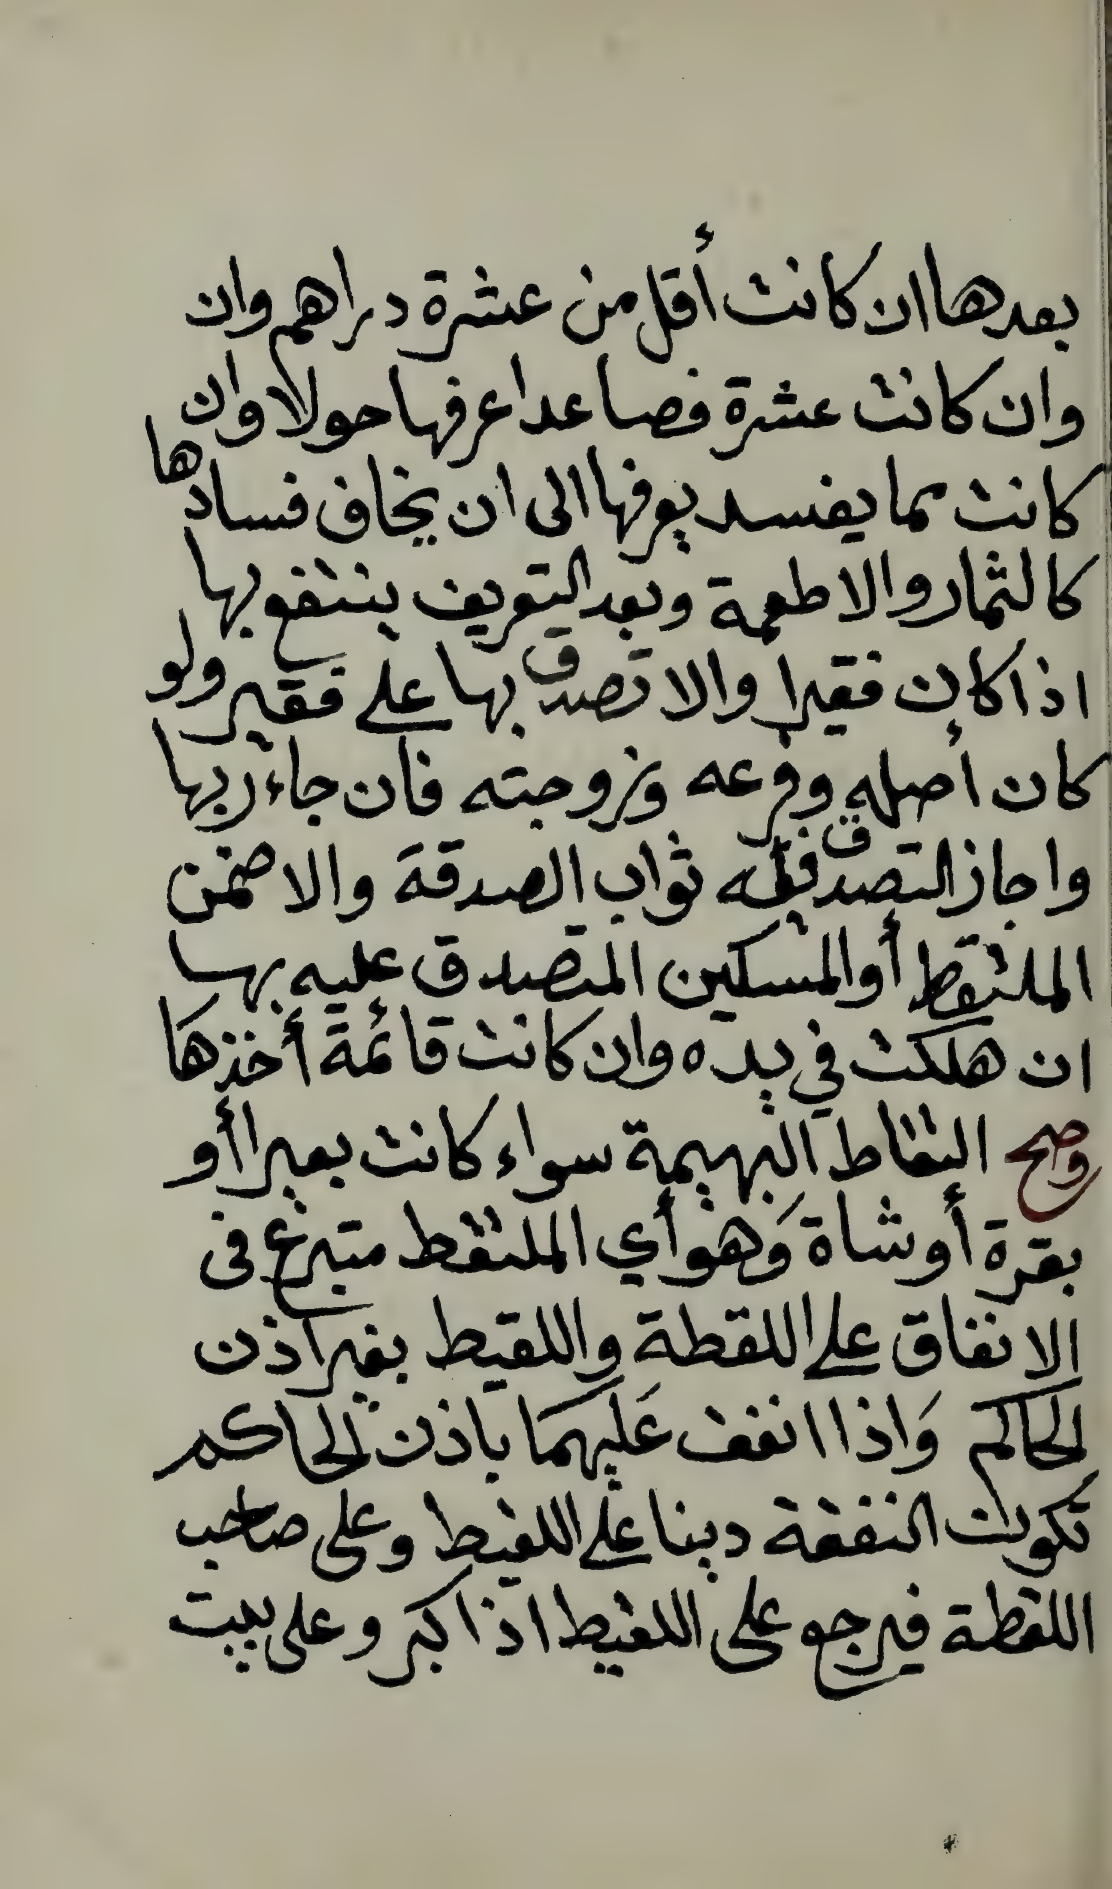 بعدها ان كانت أقل من عشرة دراهم وان
وان كانت عشرة فصاعدا عرفها حولا وان
كانت مما يفسد يعرفها الى ان يخاف فسادها
كالثمار والاطعمة وبعد التعريف ينتفع بها
اذا كان فقيرا والا تصدق بها على فقير ولو
كان أصله وفرعه وزوجته فان جاء ربها
واجاز التصدق فله ثواب الصدقة والا ضمن
الملتقط أو المسكين المتصدق عليه بها
ان هلكت في يده وان كانت قائمة أخذها
وصح التقاط البهيمة سواء كانت بعيرا أو
بقرة أو شاة وهو أي الملتقط متبرع في
الانفاق على اللقطة واللقيط بغير اذن
الحاكم واذا انفق عليهما باذن الحاكم
تكون النفقة دينا على اللقيط وعلى صاحب
اللقطة فيرجع على اللقيط اذا كبر وعلى بيت